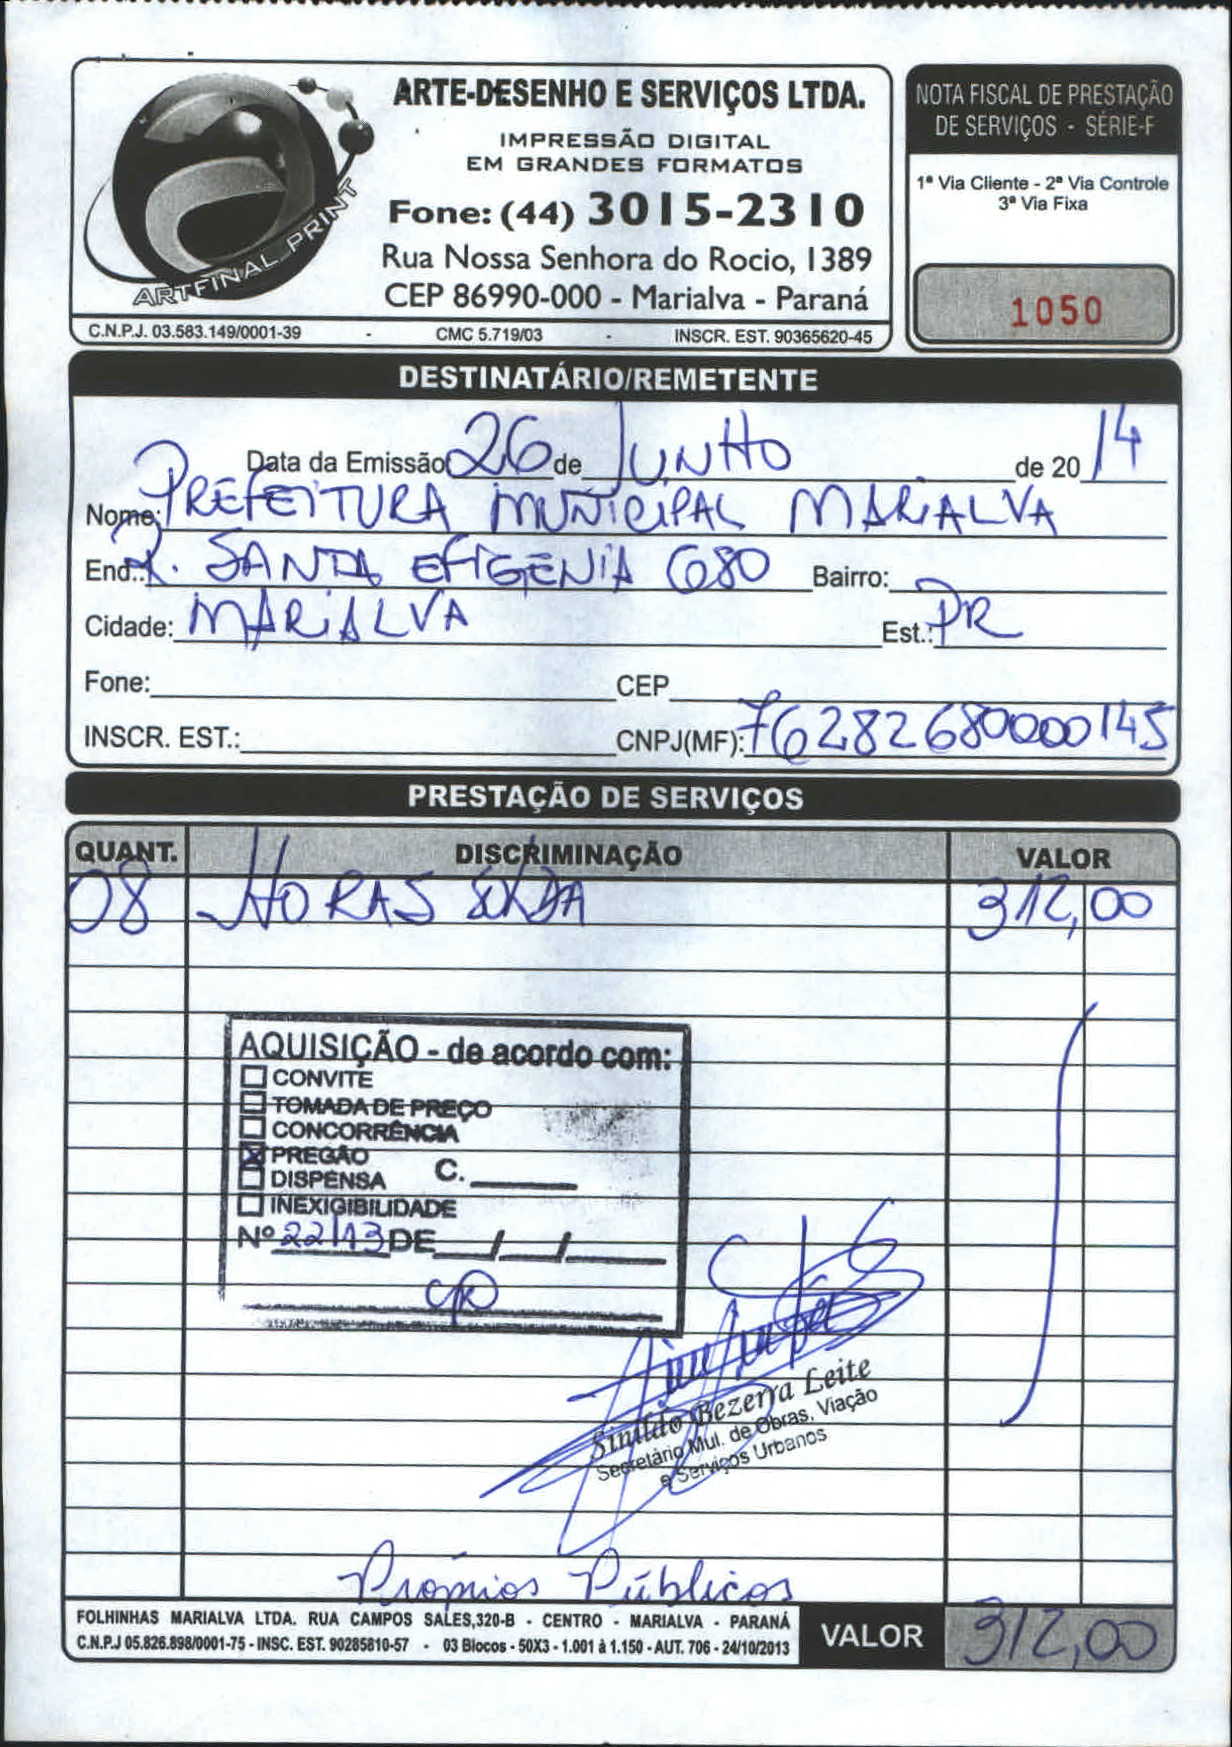 ARTE-DESENHO E SERVIÇOS LTDA.
IMPRESSÃO DIGITAL
EM GRANDES FORMATOS
Fone: (44) 3015-2310
Rua Nossa Senhora do Rocio, 1389
CEP 86990-000 - Marialva - Paraná
ARTFINAL PRINT
C.N.P.J. 03.583.149/0001-39 - CMC 5.719/03 - INSCR. EST. 90365620-45
NOTA FISCAL DE PRESTAÇÃO
DE SERVIÇOS - SÉRIE-F
1ª Via Cliente - 2ª Via Controle
3ª Via Fixa
1050
DESTINATÁRIO/REMETENTE
Data da Emissão 26 de JUNHO de 20 14
Nome: PREFEITURA MUNICIPAL MARIALVA
End.: R. SANTA EFIGENIA 680 Bairro:
Cidade: MARIALVA Est.: PR
Fone: CEP
INSCR. EST.: CNPJ(MF): 76282680000145
PRESTAÇÃO DE SERVIÇOS
QUANT. DISCRIMINAÇÃO VALOR
08 HORAS SOLDA 312,00
AQUISIÇÃO - de acordo com:
CONVITE
TOMADA DE PREÇO
CONCORRÊNCIA
PREGÃO
DISPENSA C.
INEXIGIBILIDADE
Nº 22/13 DE / /
Sinildo Bezerra Leite
Secretário Mul. de Obras, Viação
e Serviços Urbanos
Próprios Públicos
FOLHINHAS MARIALVA LTDA. RUA CAMPOS SALES,320-B - CENTRO - MARIALVA - PARANÁ
C.N.P.J 05.826.898/0001-75 - INSC. EST. 90285810-57 - 03 Blocos - 50X3 - 1.001 à 1.150 - AUT. 706 - 24/10/2013
VALOR 312,00